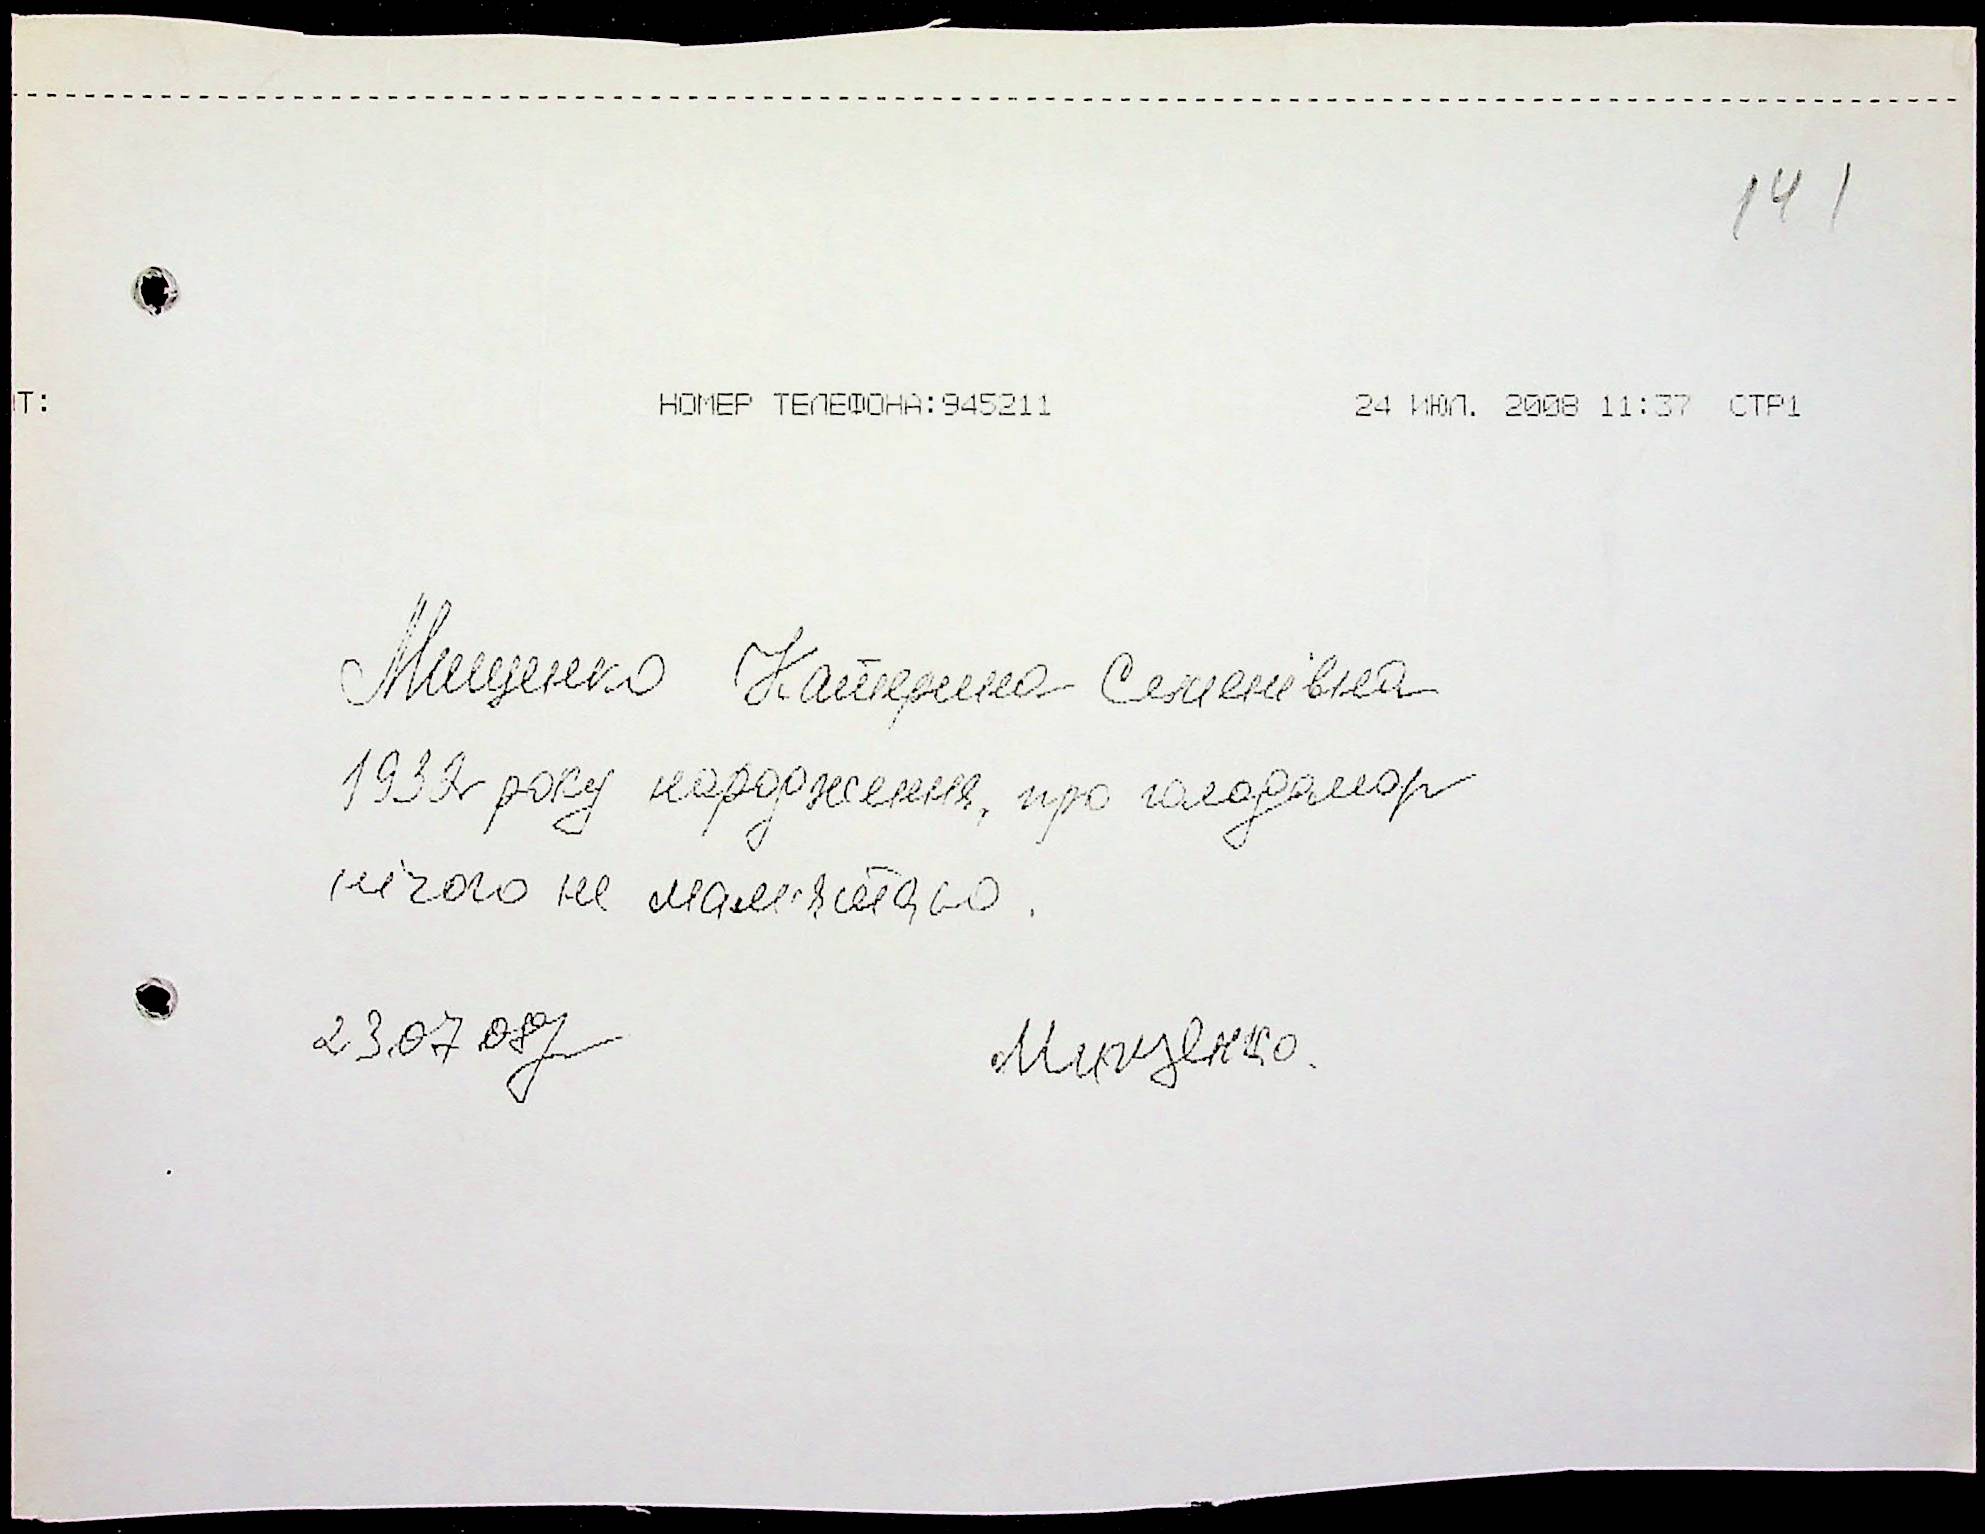 141
Т: НОМЕР ТЕЛЕФОНА:945211 24 ИЮЛ. 2008 11:37 СТР1
Мищенко Катерина Семенівна
року народження, про голодомор
нічого не
23.07.08р
Мищенко.